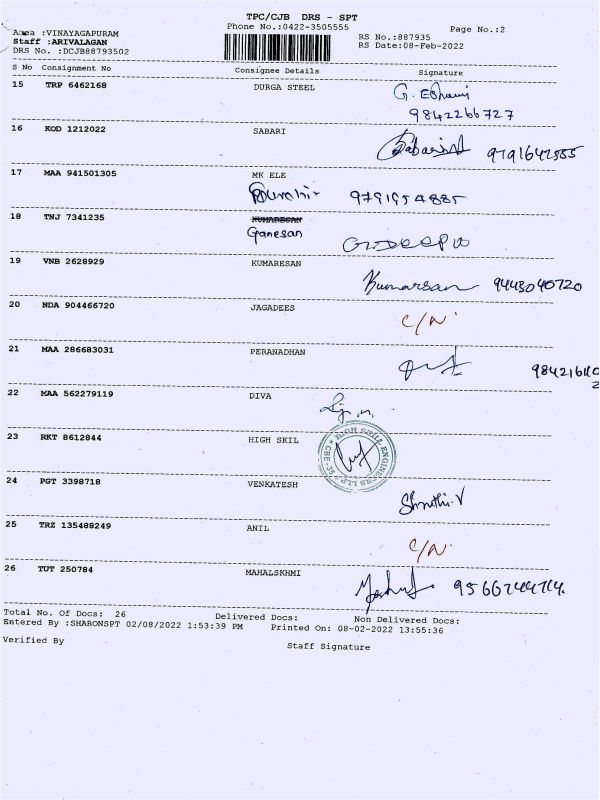 TPC/CJB DRS - SPT
Phone No.:0422-3505555
Page No.:2
Area :VINAYAGAPURAM
Staff :ARIVALAGAN
RS No.:887935
DRS No. :DCJB88793502
RS Date:08-Feb-2022
S No Consignment No Consignee Details Signature
15 TRP 6462168 DURGA STEEL
9842266727
16 KOD 1212022 SABARI
9791642555
17 MAA 941501305 MK ELE
9791954885
18 TNJ 7341235 KUMARESAN
Ganesan
19 VNB 2628929 KUMARESAN
Kumarsan 9443040720
20 NDA 904466720 JAGADEES
C/N
21 MAA 286683031 PERANADHAN
22 MAA 562279119 DIVA
23 RKT 8612844 HIGH SKIL
24 PGT 3398718 VENKATESH
Shruthi.V
25 TRZ 135488249 ANIL
C/N
26 TUT 250784 MAHALSKHMI
Total No. Of Docs: 26 Delivered Docs: Non Delivered Docs:
Entered By :SHARONSPT 02/08/2022 1:53:39 PM Printed On: 08-02-2022 13:55:36
Verified By Staff Signature